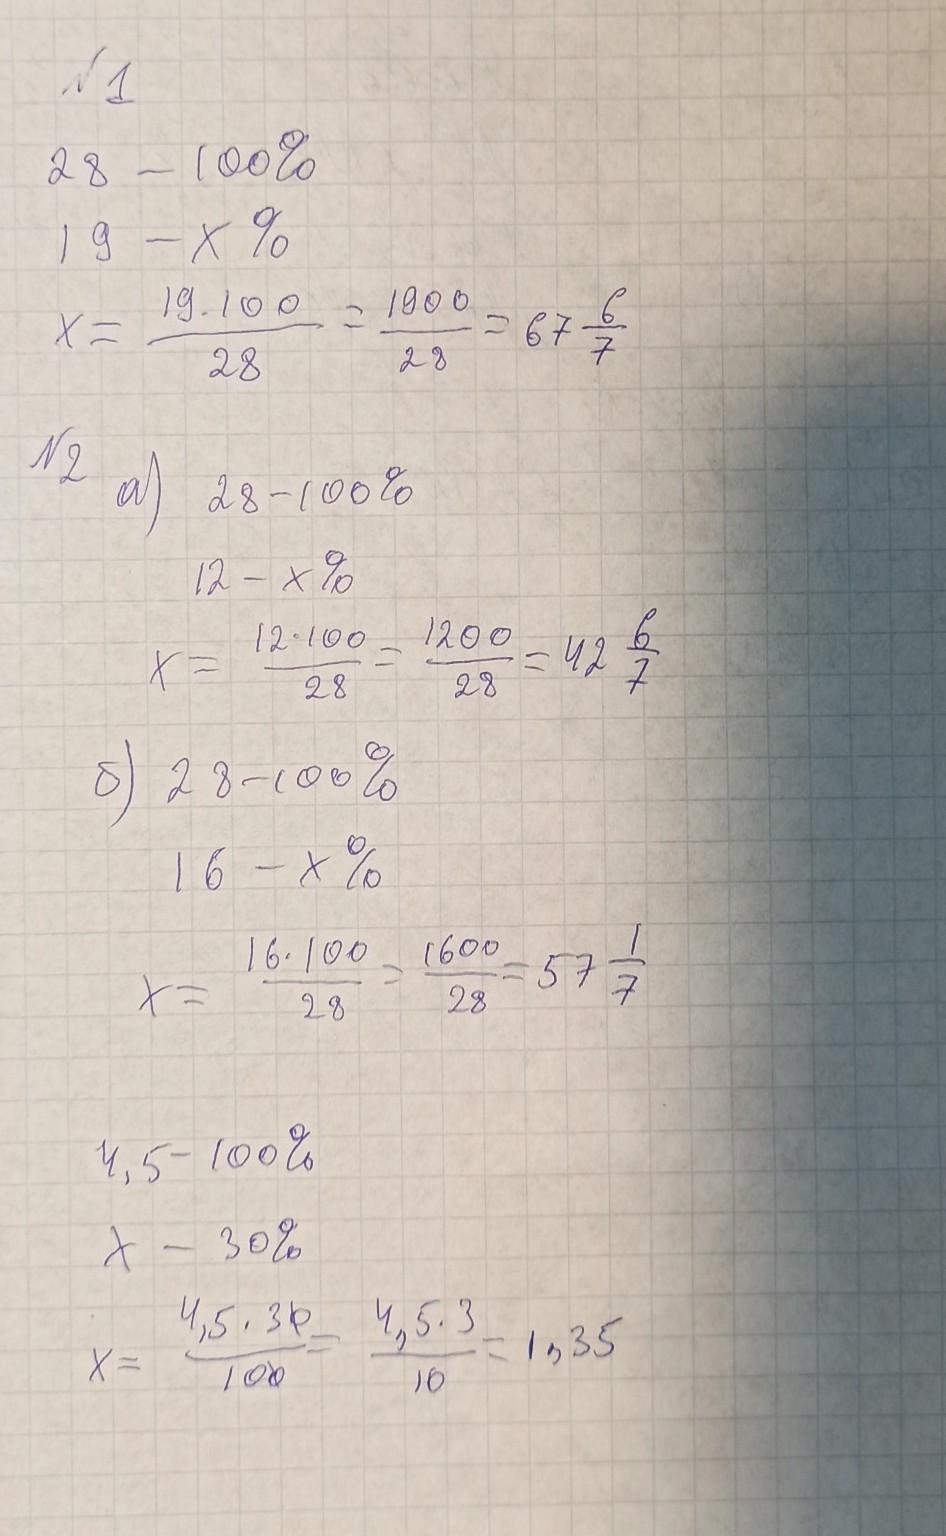 №1
28 – 100%
19 – x%
x = 19·100/28 = 1900/28 = 67 6/7
№2 а) 28 – 100%
12 – x%
x = 12·100/28 = 1200/28 = 42 6/7
б) 28 – 100%
16 – x%
x = 16·100/28 = 1600/28 = 57 1/7
4,5 – 100%
x – 30%
x = 4,5·30/100 = 4,5·3/10 = 1,35